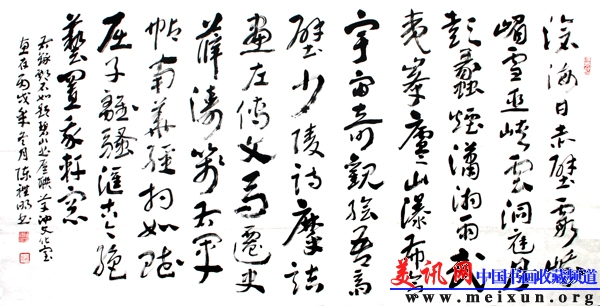 滄海日赤壁霞峨
嵋雪巫峽雲洞庭月
彭蠡煙瀟湘雨武
夷峯廬山瀑布合
宇宙奇觀繪吾齋
壁少陵詩摩詰
畫左傳文馬遷史
薛濤箋右軍
帖南華經相如賦
屈子離騷匯古今絕
藝置我軒窗
右錄鄧石如題碧山書屋聯文化室
丙戌年冬月陈
美讯网 中国书画收藏频道
www.meixun.org